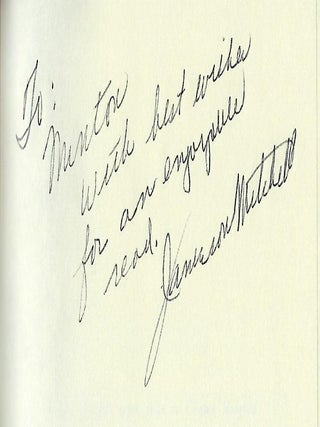 To:
Minton
With best wishes
for an enjoyable
read.
Jameson Mitchell